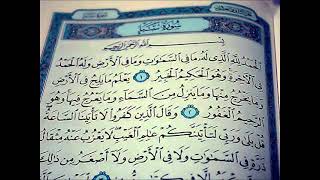 سُورَةُ سَبَإٍ
بِسْمِ اللَّهِ الرَّحْمَٰنِ الرَّحِيمِ
ٱلْحَمْدُ لِلَّهِ ٱلَّذِي لَهُۥ مَا فِي ٱلسَّمَٰوَٰتِ وَمَا فِي ٱلْأَرْضِ وَلَهُ ٱلْحَمْدُ
فِي ٱلْأَخِرَةِ وَهُوَ ٱلْحَكِيمُ ٱلْخَبِيرُ ١ يَعْلَمُ مَا يَلِجُ فِي ٱلْأَرْضِ
وَمَا يَخْرُجُ مِنْهَا وَمَا يَنزِلُ مِنَ ٱلسَّمَآءِ وَمَا يَعْرُجُ فِيهَا وَهُوَ
ٱلرَّحِيمُ ٱلْغَفُورُ ٢ وَقَالَ ٱلَّذِينَ كَفَرُوا۟ لَا تَأْتِينَا ٱلسَّاعَةُ
قُلْ بَلَىٰ وَرَبِّي لَتَأْتِيَنَّكُمْ عَٰلِمِ ٱلْغَيْبِ لَا يَعْزُبُ عَنْهُ مِثْقَالُ
ذَرَّةٍ فِي ٱلسَّمَٰوَٰتِ وَلَا فِي ٱلْأَرْضِ وَلَآ أَصْغَرُ مِن